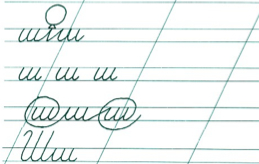 шиш
ш ш ш
шиш
Шш